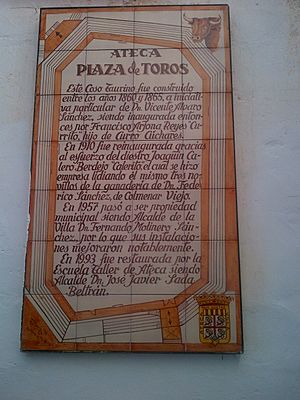 ATECA
PLAZA de TOROS
Este Coso Taurino fue construido
entre los años 1860 y 1865, a iniciati
va particular de Dn. Vicente Alvaro
Sánchez, siendo inaugurada enton-
ces por Francisco Arjona Reyes Cu-
rrito, hijo de Curro Cúchares.
En 1910 fue reinaugurada gracias
al esfuerzo del diestro Joaquín Ca-
lero, Berdejo Calerito, el cual se hizo
empresa lidiando el mismo tres no-
villos de la ganadería de Dn. Fede-
rico Sánchez, de Colmenar Viejo.
En 1957 pasó a ser propiedad
municipal siendo Alcalde de la
Villa Dn. Fernando Molinero Sán-
chez, por lo que sus instalacio-
nes mejoraron notablemente.
En 1993 fue restaurada por la
Escuela Taller de Ateca siendo
Alcalde Dn. José Javier Sada
Beltrán.